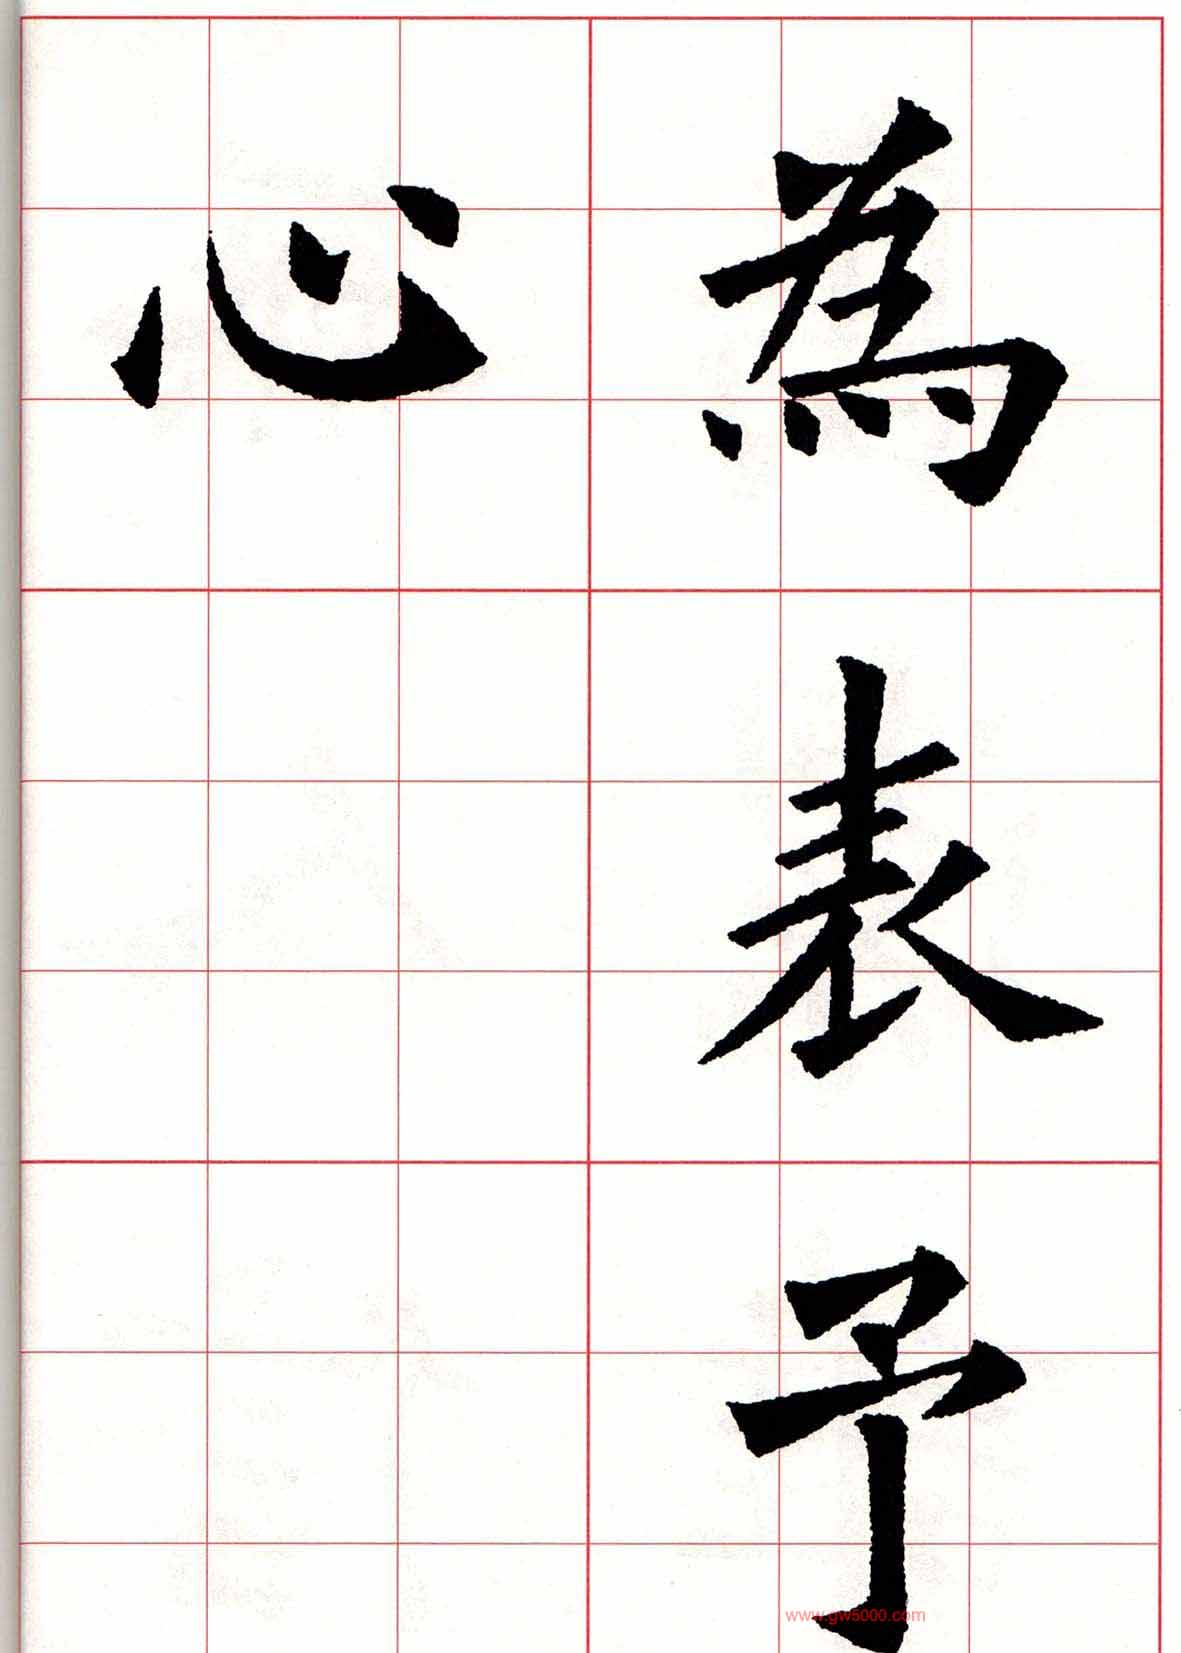 為表予
心
www.gw5000.com